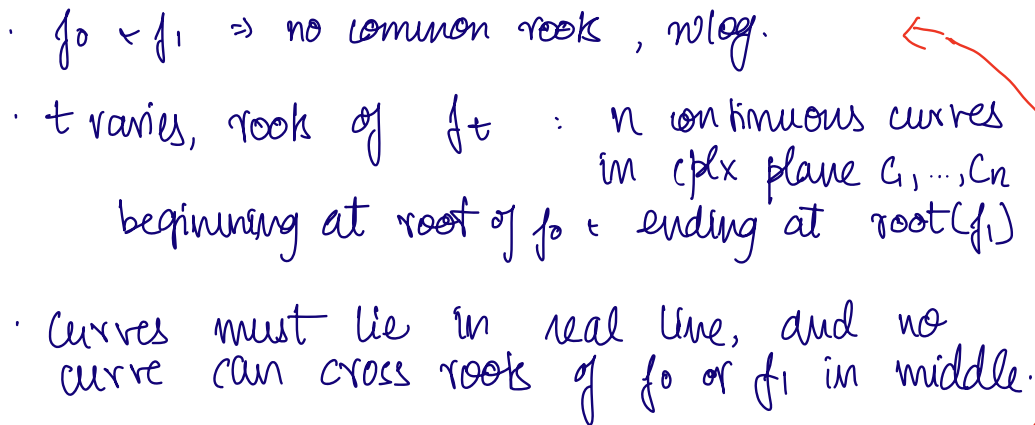 · f0 & f1 ⇒ no common roots, wlog.
· t varies, roots of ft : n continuous curves
in cplx plane C1, ..., Cn
beginning at root of f0 & ending at root(f1)
· Curves must lie in real line, and no
curve can cross roots of f0 or f1 in middle.